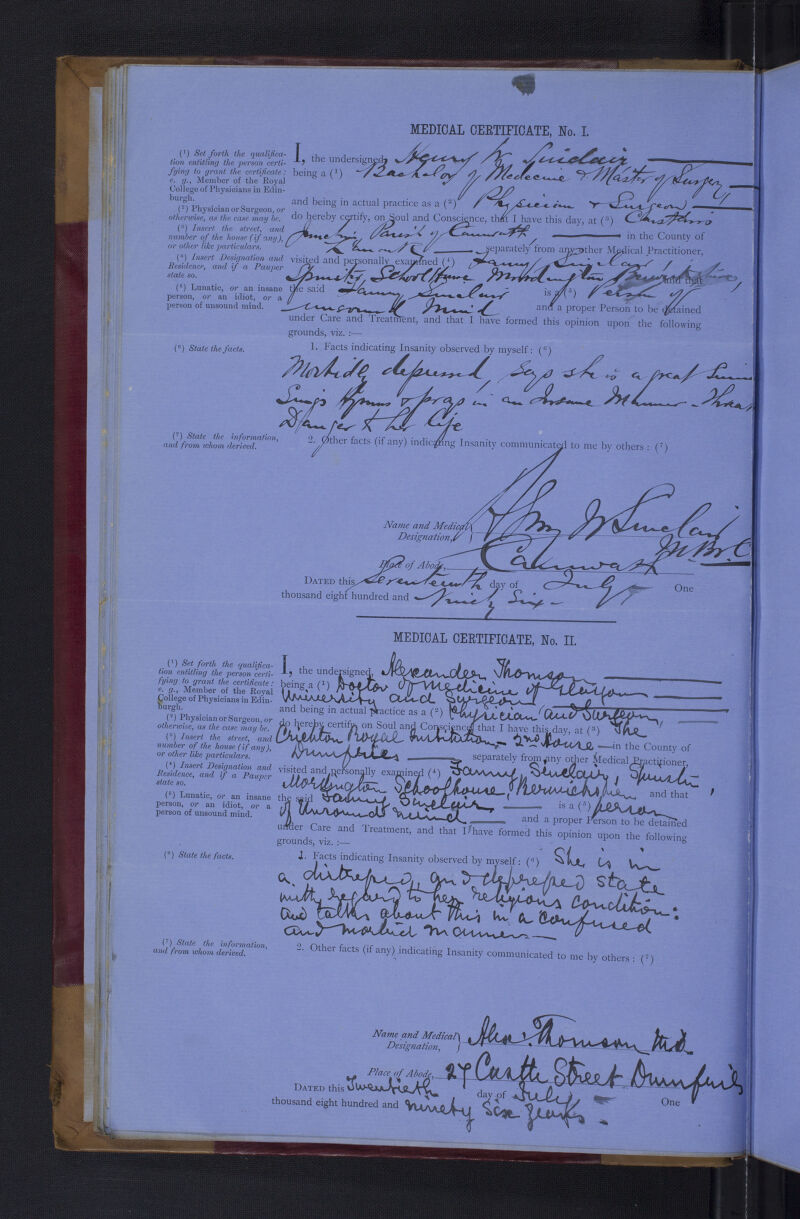 MEDICAL CERTIFICATE, No. I.
(¹) Set forth the qualifica-
tion entitling the person certi-
fying to grant the certificate:
e. g., Member of the Royal
College of Physicians in Edin-
burgh.
(²) Physician or Surgeon, or
otherwise, as the case may be.
(³) Insert the street, and
number of the house (if any),
or other like particulars.
(⁴) Insert Designation and
Residence, and if a Pauper
state so.
(⁵) Lunatic, or an insane
person, or an idiot, or a
person of unsound mind.
I, the undersigned, Henry W Sinclair
being a (¹) Bachelor of Medecine & Master of Surgery
and being in actual practice as a (²) Physician & Surgeon,
do hereby certify, on Soul and Conscience, that I have this day, at (³) Carstairs
Junction Parish of Carnwath, in the County of
Lanark separately from any other Medical Practitioner,
visited and personally examined (⁴) Fanny Sinclair,
School House Mordington and that
the said Fanny Sinclair is a (⁵) Person of
unsound Mind and a proper Person to be detained
under Care and Treatment, and that I have formed this opinion upon the following
grounds, viz. :—
(⁶) State the facts.
1. Facts indicating Insanity observed by myself: (⁶)
Morbidly depressed, Says she is a great
Sings Hymns & prays in an Insane Manner -
Danger to her life
(⁷) State the information,
and from whom derived.
2. Other facts (if any) indicating Insanity communicated to me by others : (⁷)
Name and Medical
Designation, Henry W Sinclair
M.B. C
Place of Abode, Carnwath
DATED this Seventeenth day of July One
thousand eight hundred and Ninety Six
MEDICAL CERTIFICATE, No. II.
(¹) Set forth the qualifica-
tion entitling the person certi-
fying to grant the certificate:
e. g., Member of the Royal
College of Physicians in Edin-
burgh.
(²) Physician or Surgeon, or
otherwise, as the case may be.
(³) Insert the street, and
number of the house (if any),
or other like particulars.
(⁴) Insert Designation and
Residence, and if a Pauper
state so.
(⁵) Lunatic, or an insane
person, or an idiot, or a
person of unsound mind.
I, the undersigned, Alexander Thomson
being a (¹) Doctor of Medicine of Glasgow
University and Surgeon
and being in actual practice as a (²) Physician and Surgeon,
do hereby certify, on Soul and Conscience, that I have this day, at (³) The
Crichton Royal Institution, 2nd House in the County of
Dumfries separately from any other Medical Practitioner,
visited and personally examined (⁴) Fanny Sinclair,
Mordington Schoolhouse, and that
the said Fanny Sinclair is a (⁵) person
of Unsound mind and a proper Person to be detained
under Care and Treatment, and that I have formed this opinion upon the following
grounds, viz. :—
(⁶) State the facts.
1. Facts indicating Insanity observed by myself: (⁶) She is in
a distressed, and depressed state
with regard to her religious condition:
and talks about this in a confused
and morbid manner
(⁷) State the information,
and from whom derived.
2. Other facts (if any) indicating Insanity communicated to me by others : (⁷)
Name and Medical
Designation, Alex. Thomson M.D.
Place of Abode, 27 Castle Street Dumfries
DATED this Twentieth day of July One
thousand eight hundred and ninety six years